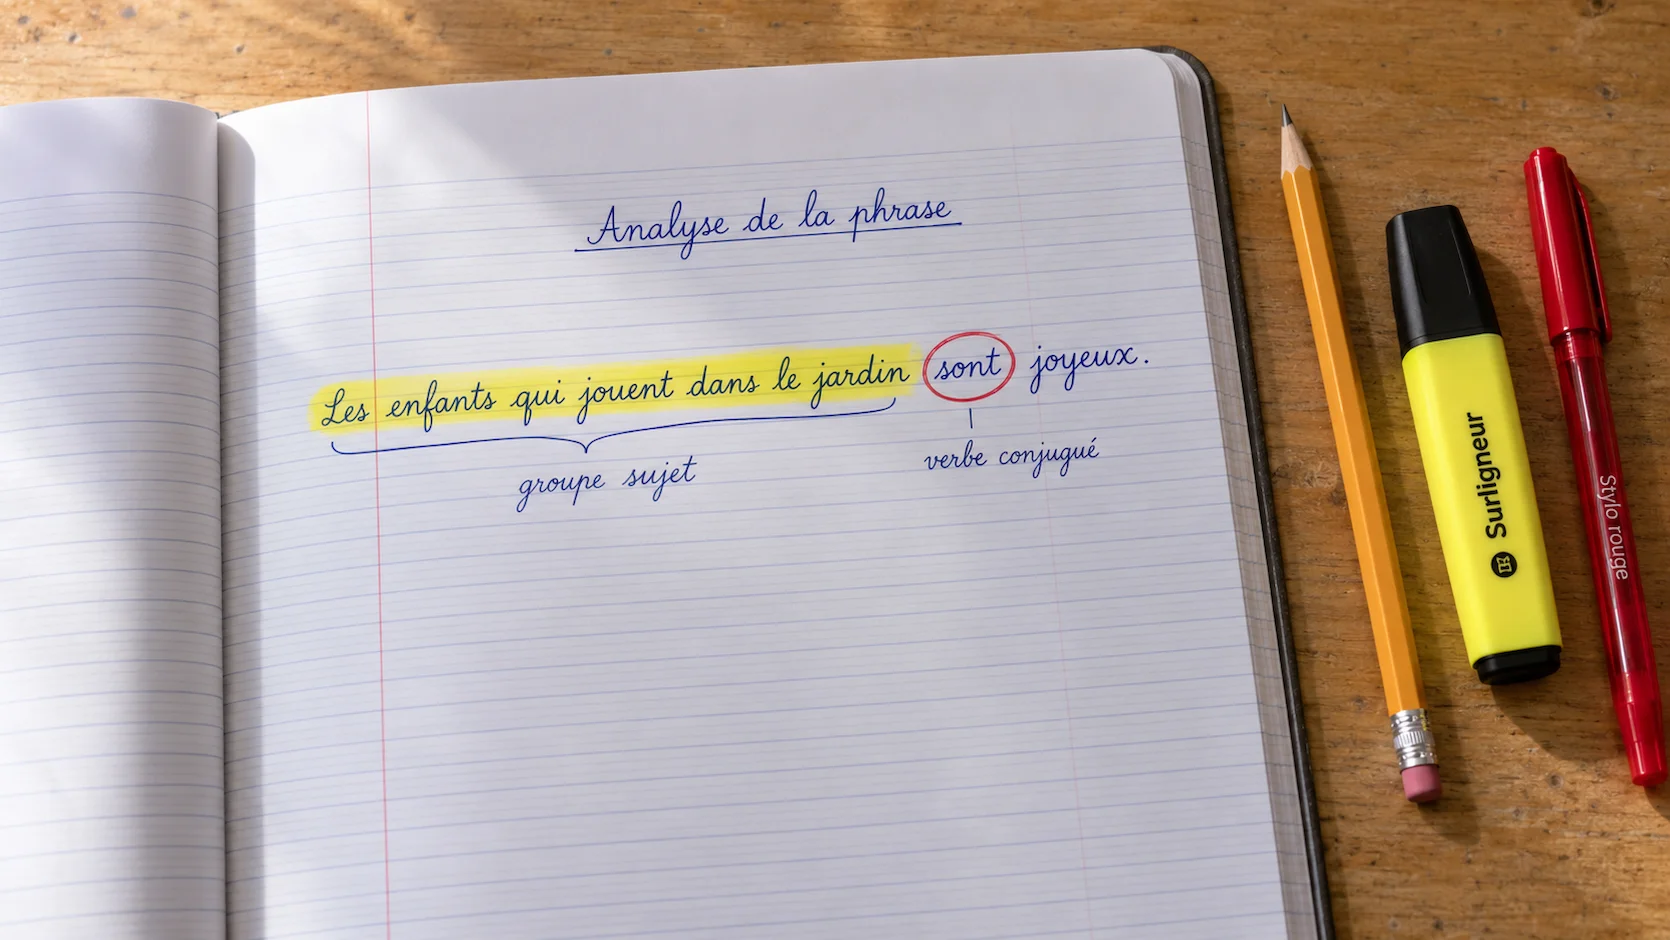 Analyse de la phrase
Les enfants qui jouent dans le jardin sont joyeux.
groupe sujet
verbe conjugué
Surligneur
Stylo rouge